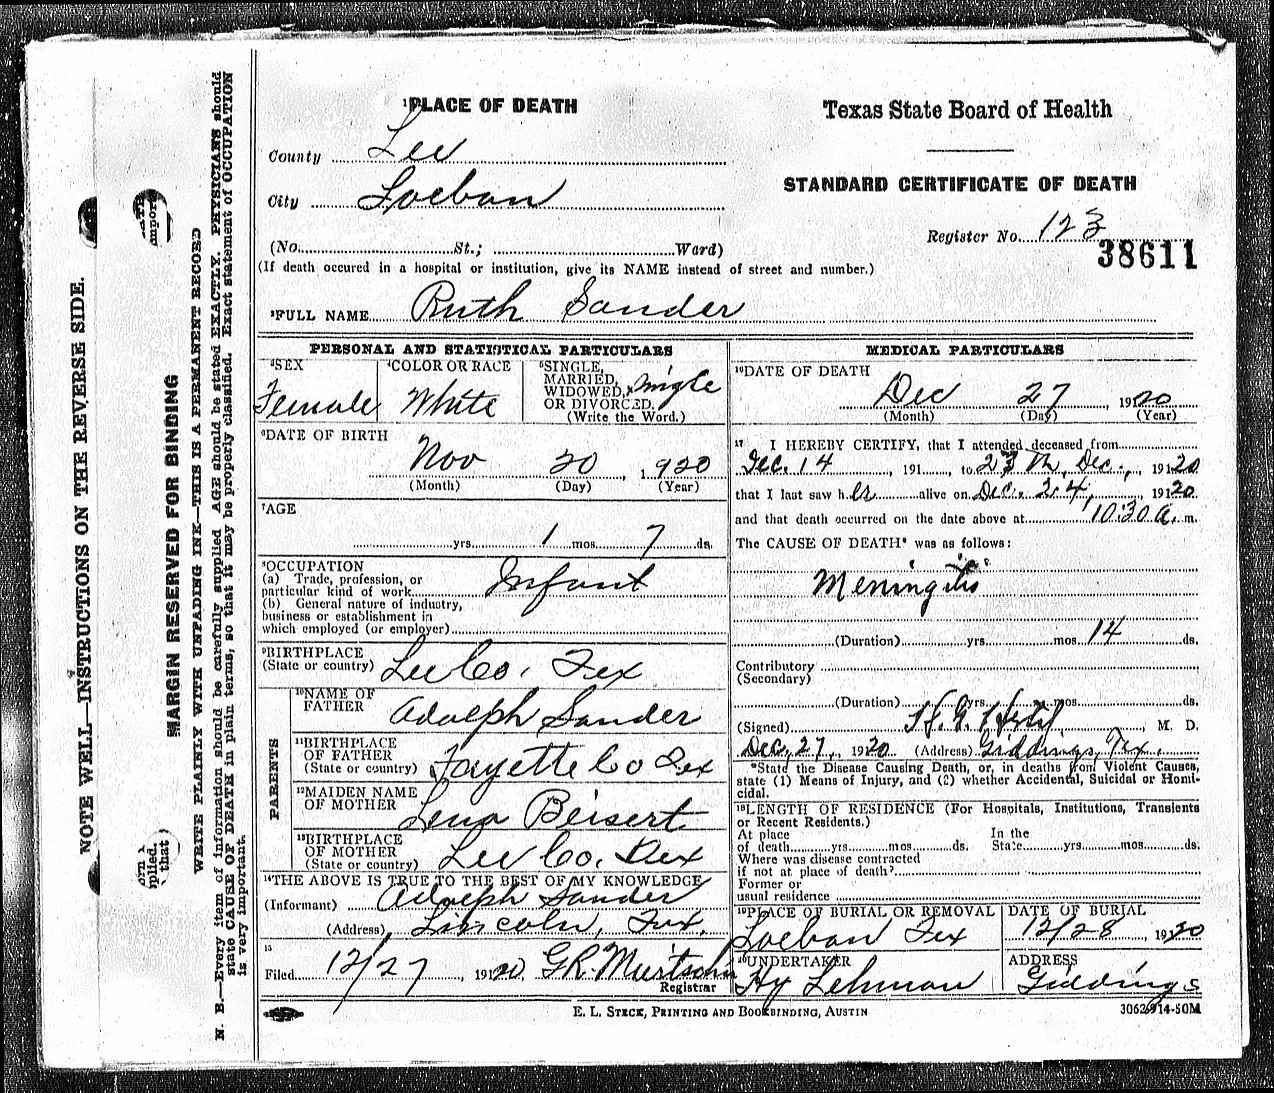 NOTE WELL.—INSTRUCTIONS ON THE REVERSE SIDE.
MARGIN RESERVED FOR BINDING
WRITE PLAINLY WITH UNFADING INK—THIS IS A PERMANENT RECORD
N. B.—Every item of information should be carefully supplied AGE should be stated EXACTLY. PHYSICIANS should
state CAUSE OF DEATH in plain terms, so that it may be properly classified. Exact statement of OCCUPATION
is very important.
¹PLACE OF DEATH
County Lee
City Loebau
(No. St.; Ward)
(If death occured in a hospital or institution, give its NAME instead of street and number.)
²FULL NAME Ruth Sander
Texas State Board of Health
STANDARD CERTIFICATE OF DEATH
Register No. 123
38611
PERSONAL AND STATISTICAL PARTICULARS
³SEX
Female
⁴COLOR OR RACE
White
⁵SINGLE,
MARRIED,
WIDOWED, Single
OR DIVORCED.
(Write the Word.)
⁶DATE OF BIRTH
Nov 20, 1920
(Month) (Day) (Year)
⁷AGE
yrs. 1 mos. 7 ds.
⁸OCCUPATION
(a) Trade, profession, or
particular kind of work Infant
(b) General nature of industry,
business or establishment in
which employed (or employer)
⁹BIRTHPLACE
(State or country) Lee Co. Tex
PARENTS
¹⁰NAME OF
FATHER Adolph Sander
¹¹BIRTHPLACE
OF FATHER
(State or country) Fayette Co Tex
¹²MAIDEN NAME
OF MOTHER Lena Beisert
¹³BIRTHPLACE
OF MOTHER
(State or country) Lee Co. Tex
¹⁴THE ABOVE IS TRUE TO THE BEST OF MY KNOWLEDGE
(Informant) Adolph Sander
(Address) Lincoln, Tex.
15
Filed 12/27, 1920 G.R. Miertschin
Registrar
MEDICAL PARTICULARS
¹⁶DATE OF DEATH
Dec 27, 1920
(Month) (Day) (Year)
17 I HEREBY CERTIFY, that I attended deceased from
Dec. 14, 191 , to Dec., 19120
that I last saw her alive on Dec. 24, 19120
and that death occurred on the date above at 10:30 a. m.
The CAUSE OF DEATH* was as follows:
Meningitis
(Duration) yrs. mos. 14 ds.
Contributory
(Secondary)
(Duration) yrs. mos. ds.
(Signed) , M. D.
Dec. 27, 1920 (Address) Giddings, Tex.
*State the Disease Causing Death, or, in deaths from Violent Causes,
state (1) Means of Injury, and (2) whether Accidental, Suicidal or Homi-
cidal.
¹⁸LENGTH OF RESIDENCE (For Hospitals, Institutions, Transients
or Recent Residents.)
At place In the
of death yrs. mos. ds. State yrs. mos. ds.
Where was disease contracted
if not at place of death?
Former or
usual residence
¹⁹PLACE OF BURIAL OR REMOVAL
Loebau Tex
DATE OF BURIAL
12/28, 1920
²⁰UNDERTAKER
Hy Lehman
ADDRESS
Giddings
E. L. STECK, PRINTING AND BOOKBINDING, AUSTIN
3062-914-50M